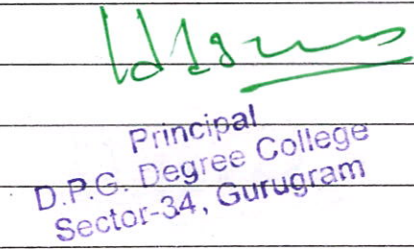 Principal
D.P.G. Degree College
Sector-34, Gurugram